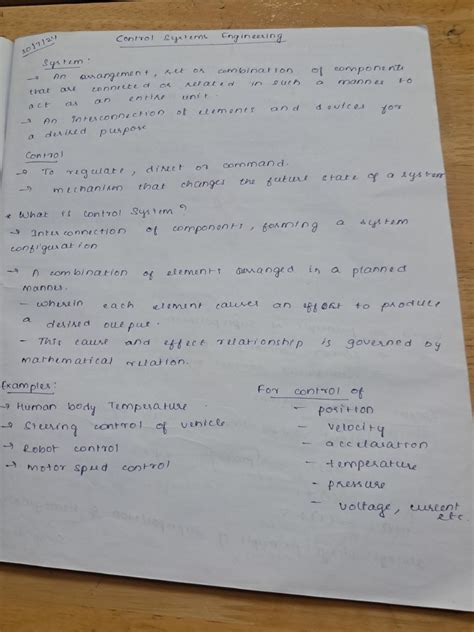 30/7/24
Control Systems Engineering
System:
→ An arrangement, set or combination of components
that are connected or related in such a manner to
act as an entire unit.
→ An Interconnection of elements and devices for
a desired purpose
Control
→ To regulate, direct or command.
→ mechanism that changes the future state of a system
* What is control system?
→ Interconnection of components, forming a system
configuration
→ A combination of elements arranged in a planned
manner.
- wherein each element causes an effort to produce
a desired output.
- This cause and effect relationship is governed by
mathematical relation.
Examples:
→ Human body Temperature
→ Steering control of vehicle
→ Robot control
→ Motor speed control
For control of
- position
- velocity
- accelaration
- temperature
- pressure
- voltage, current
etc.